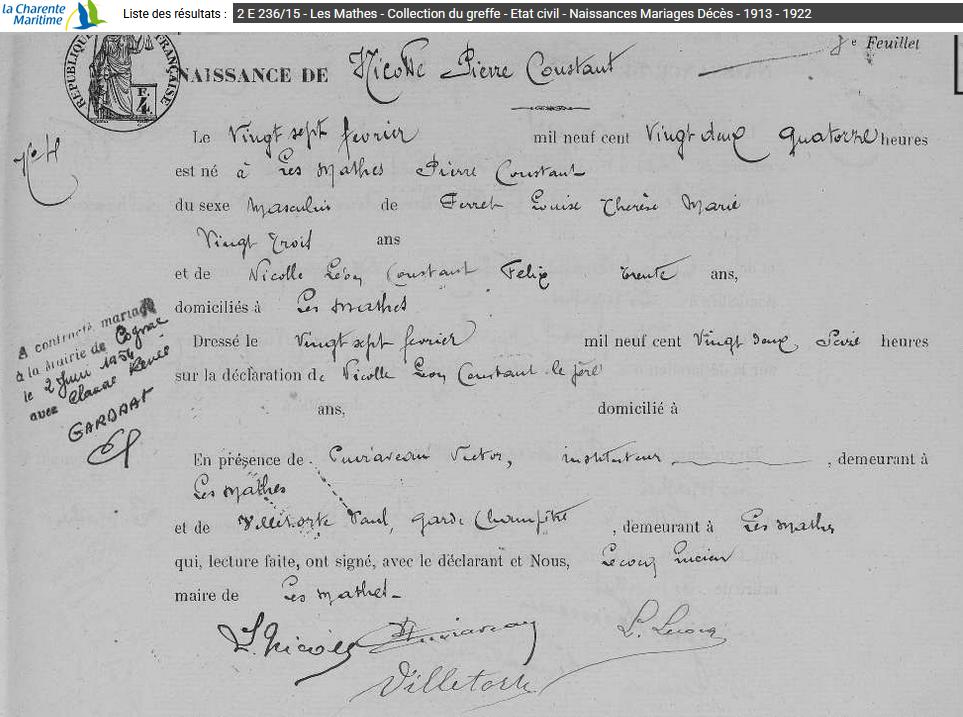 la Charente
Maritime
Liste des résultats : 2 E 236/15 - Les Mathes - Collection du greffe - Etat civil - Naissances Mariages Décès - 1913 - 1922
e Feuillet
RÉPUBLIQUE FRANÇAISE
F.
4
NAISSANCE DE Nicolle Pierre Constant
Le Vingt sept fevrier mil neuf cent Vingt deux Quatorze heures
est né à Les Mathes Pierre Constant
du sexe Masculin de Ferret Louise Therèse Marie
Vingt Trois ans
et de Nicolle Léon Constant Felix trente ans,
domiciliés à Les Mathes
Dressé le Vingt sept fevrier mil neuf cent Vingt deux Seize heures
sur la déclaration de Nicolle Léon Constant le père
ans, domicilié à
En présence de Victor, instituteur , demeurant à
Les Mathes
et de Villetorte Paul, garde Champêtre , demeurant à Les Mathes
qui, lecture faite, ont signé, avec le déclarant et Nous, Lecocq Lucien
maire de Les Mathes
A contracté mariage
à la Mairie de Cognac
le 2 Juin 1954
avec Claude Renée
GARDRAT
L. Nicolle
L. Lecocq
Villetorte